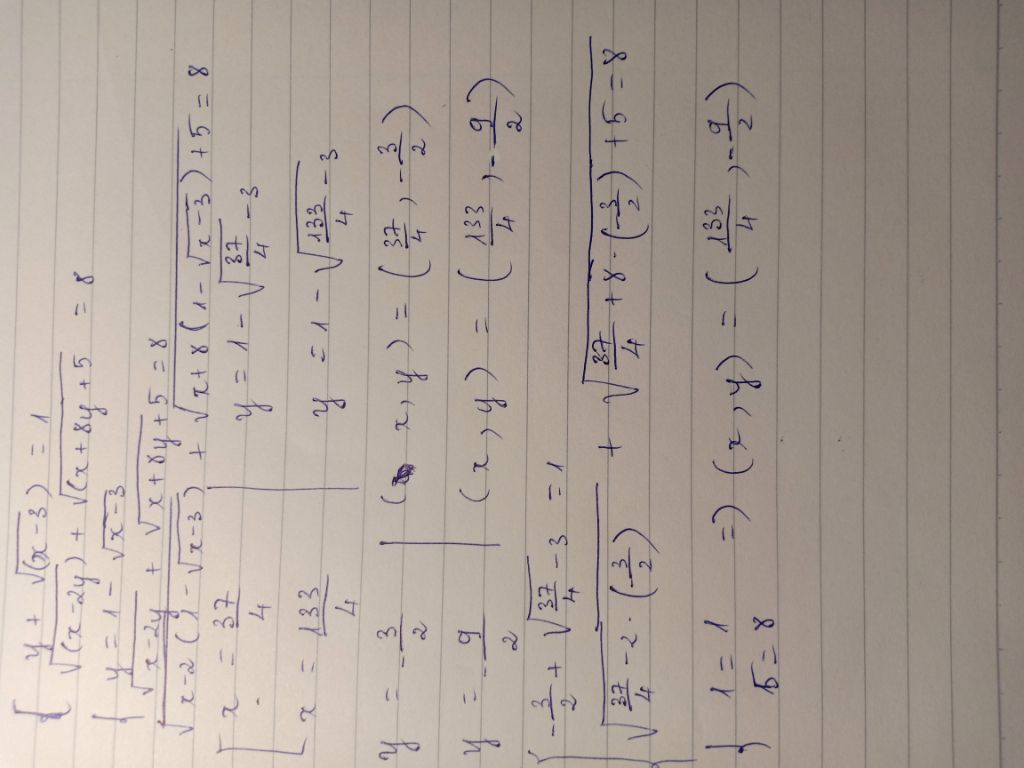 { y + √(x-3) = 1
√(x-2y) + √(x+8y+5 = 8
{ y = 1 - √x-3
√x-2y + √x+8y+5 = 8
√x-2(1-√x-3) + √x+8(1-√x-3)+5 = 8
[ x = 37/4 | y = 1 - √37/4-3
x = 133/4 | y = 1 - √133/4-3
y = -3/2 | (x,y) = (37/4, -3/2)
y = -9/2 | (x,y) = (133/4, -9/2)
{ -3/2 + √37/4-3 = 1
√37/4-2·(3/2) + √37/4+8·(3/2)+5 = 8
} 1 = 1 => (x,y) = (133/4, -9/2)
5 = 8